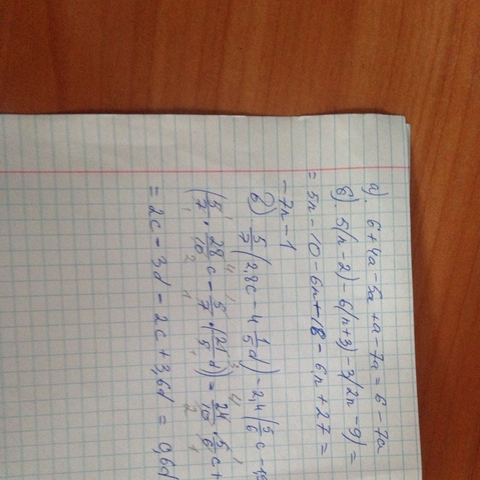 а). 6 + 4а - 5а + а - 7а = 6 - 7а
б). 5(n - 2) - 6(n + 3) - 3(2n - 9) =
= 5n - 10 - 6n - 18 - 6n + 27 =
- 7n - 1
в) 5/7 (2,8c - 4 1/5 d) - 2,4 (5/6 c -
(5/7 · 28/10 c - 5/7 · (21/5 d)) = 24/10 · 5/6 c +
= 2c - 3d - 2c + 3,6d = 0,6d